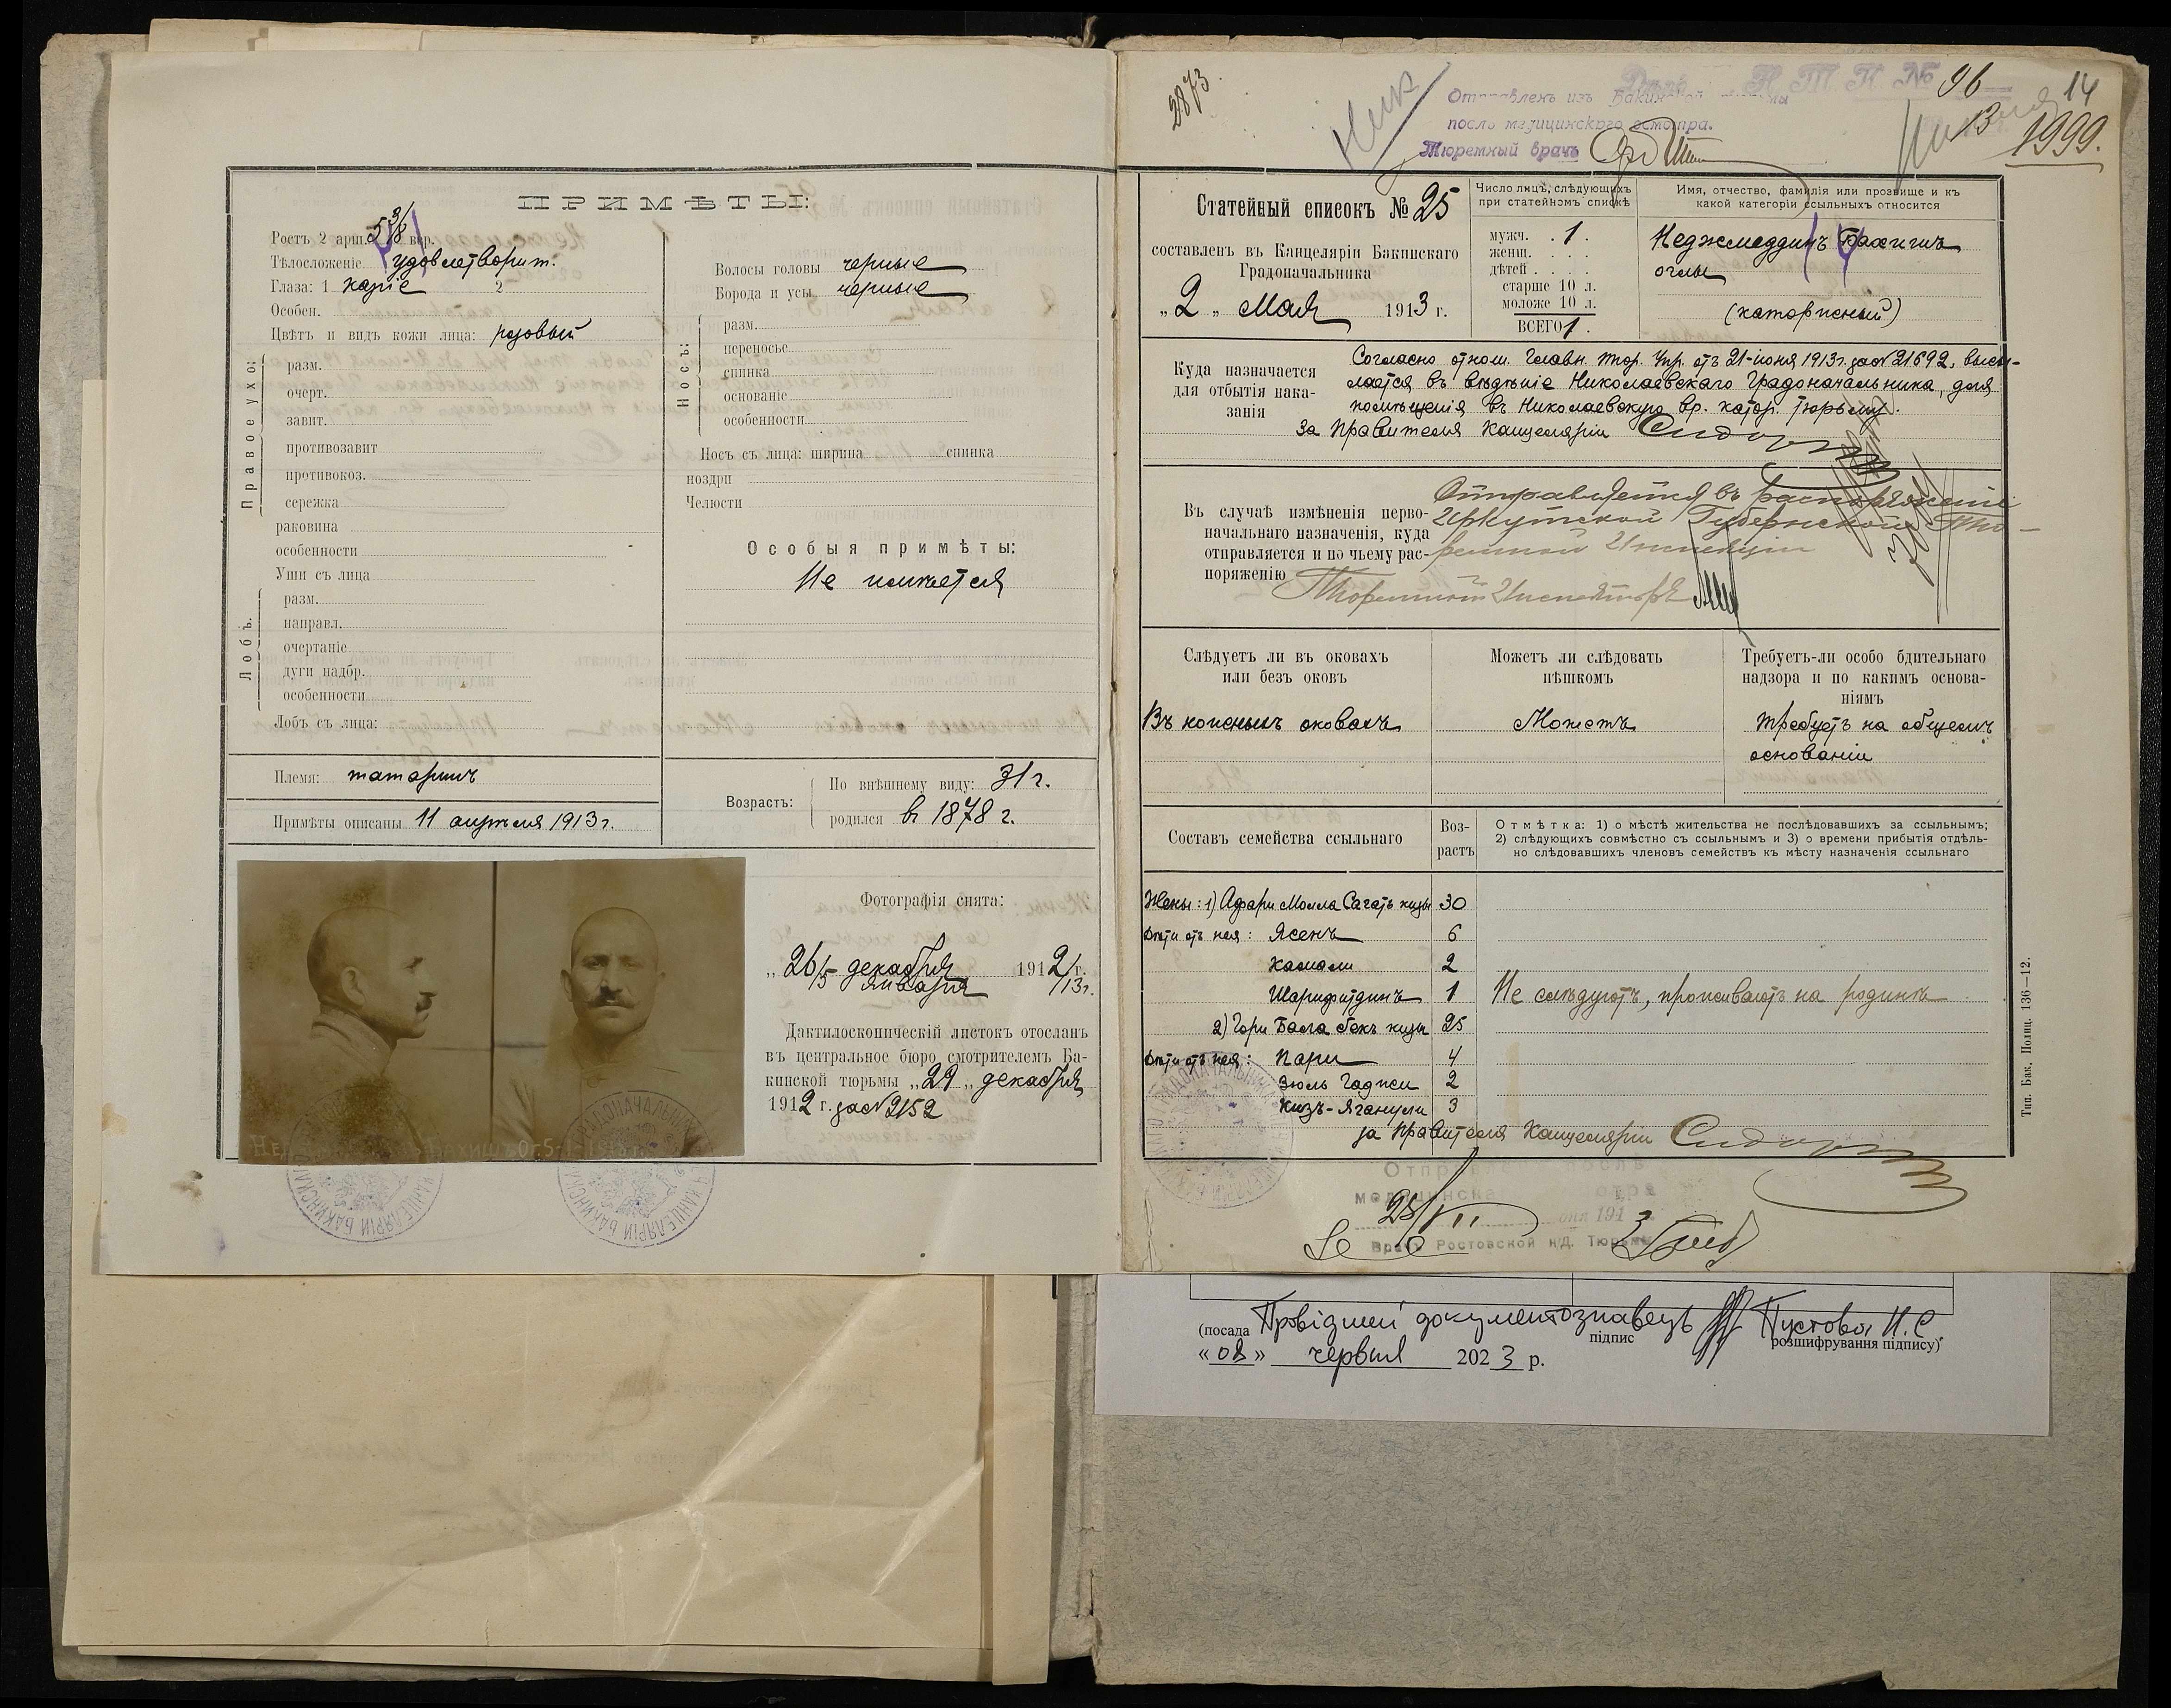 ПРИМѢТЫ:
Ростъ 2 арш. 5 3/8 вер.
Тѣлосложеніе удовлетворит.
Глаза: 1 каріе 2
Особен.
Цвѣтъ и видъ кожи лица: розовый
Правое ухо:
разм.
очерт.
завит.
противозавит
противокоз.
сережка
раковина
особенности
Уши съ лица
Лобъ.
разм.
направл.
очертаніе
дуги надбр.
особенности
Лобъ съ лица:
Волосы головы черные
Борода и усы черные
Носъ:
разм.
переносье
спинка
основаніе
особенности
Носъ съ лица: ширина спинка
ноздри
Челюсти
Особыя примѣты:
Не имѣется
Племя: татаринъ
Примѣты описаны 11 апрѣля 1913 г.
Возрастъ:
По внѣшнему виду: 31 г.
родился въ 1878 г.
Фотографія снята:
„ 26/5 декабря 1912/г.
Января /13 г.
Дактилоскопическій листокъ отосланъ
въ центральное бюро смотрителемъ Ба-
кинской тюрьмы „29„ декабря
1912 г. за № 2152
2873
Отправленъ изъ Бакинской тюрьмы
послѣ медицинскаго осмотра.
Тюремный врачъ
Н. Т. И. №
96
14
13
1999.
Статейный списокъ № 25
составленъ въ Канцеляріи Бакинскаго
Градоначальника
„ 2 „ Мая 1913 г.
Число лицъ, слѣдующихъ
при статейномъ спискѣ
мужч. . 1 .
женщ. . . .
дѣтей . . . .
старше 10 л.
моложе 10 л.
ВСЕГО 1 .
Имя, отчество, фамилія или прозвище и къ
какой категоріи ссыльныхъ относится
Неджмеддинъ Бахишъ
оглы
(каторжный)
Куда назначается
для отбытія нака-
занія
Согласно отнош. Главн. Тюр. Упр. отъ 21-іюня 1913 г. за № 21692, высы-
лается въ вѣдѣніе Николаевскаго Градоначальника, для
помѣщенія въ Николаевскую вр. катор. тюрьму.
За Правителя Канцеляріи
Въ случаѣ измѣненія перво-
начальнаго назначенія, куда
отправляется и по чьему рас-
поряженію
Отправляется въ распоряженіе
Иркутской Губернской Тю-
ремной Инспекціи
Тюремный Инспекторъ
Слѣдуетъ ли въ оковахъ
или безъ оковъ
Можетъ ли слѣдовать
пѣшкомъ
Требуетъ-ли особо бдительнаго
надзора и по какимъ основа-
ніямъ
Въ ножныхъ оковахъ
Можетъ
Требуетъ на общемъ
основаніи
Составъ семейства ссыльнаго
Воз-
растъ
Отмѣтка: 1) о мѣстѣ жительства не послѣдовавшихъ за ссыльнымъ;
2) слѣдующихъ совмѣстно съ ссыльнымъ и 3) о времени прибытія отдѣль-
но слѣдовавшихъ членовъ семействъ къ мѣсту назначенія ссыльнаго
Жены: 1) Афари Молла Сагатъ кизы 30
Дѣти отъ нея: Ясенъ 6
Камали 2
Шарифитдинъ 1
Не слѣдуютъ, проживаютъ на родинѣ
2) Гори Бала бекъ кизы 25
Дѣти отъ нея: Пари 4
Зюль Гаджи 2
Кизъ-Яганули 3
за Правителя Канцеляріи
Тип. Бак. Полиц. 136—12.
25/VII
191 3
Врачъ Ростовской н/Д. Тюрьмы
(посада Провідний документознавець
підпис
Пустова Н.С.
розшифрування підпису)
«08» червня 2023 р.